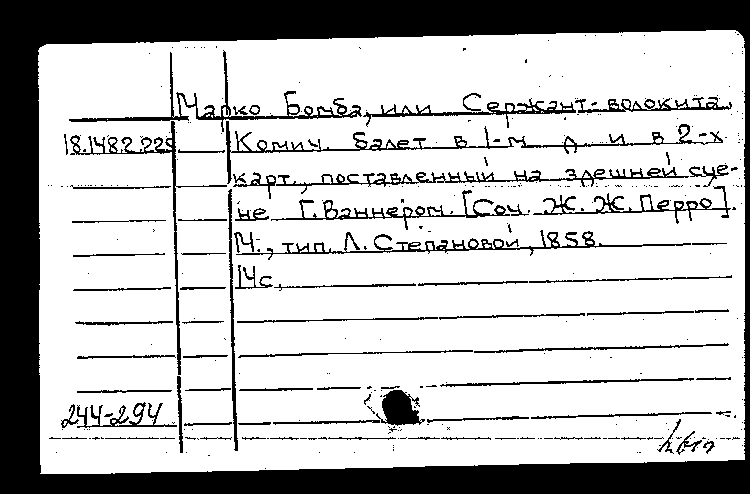 Марко Бомба, или Сержант-волокита.
18.148.2.225 Комич. балет в 1-м д. и в 2-х
карт., поставленный на здешней сце-
не Г. Ваннером. [Соч. Ж. Ж. Перро].
М., тип. Л. Степановой, 1858.
14с.
244-294